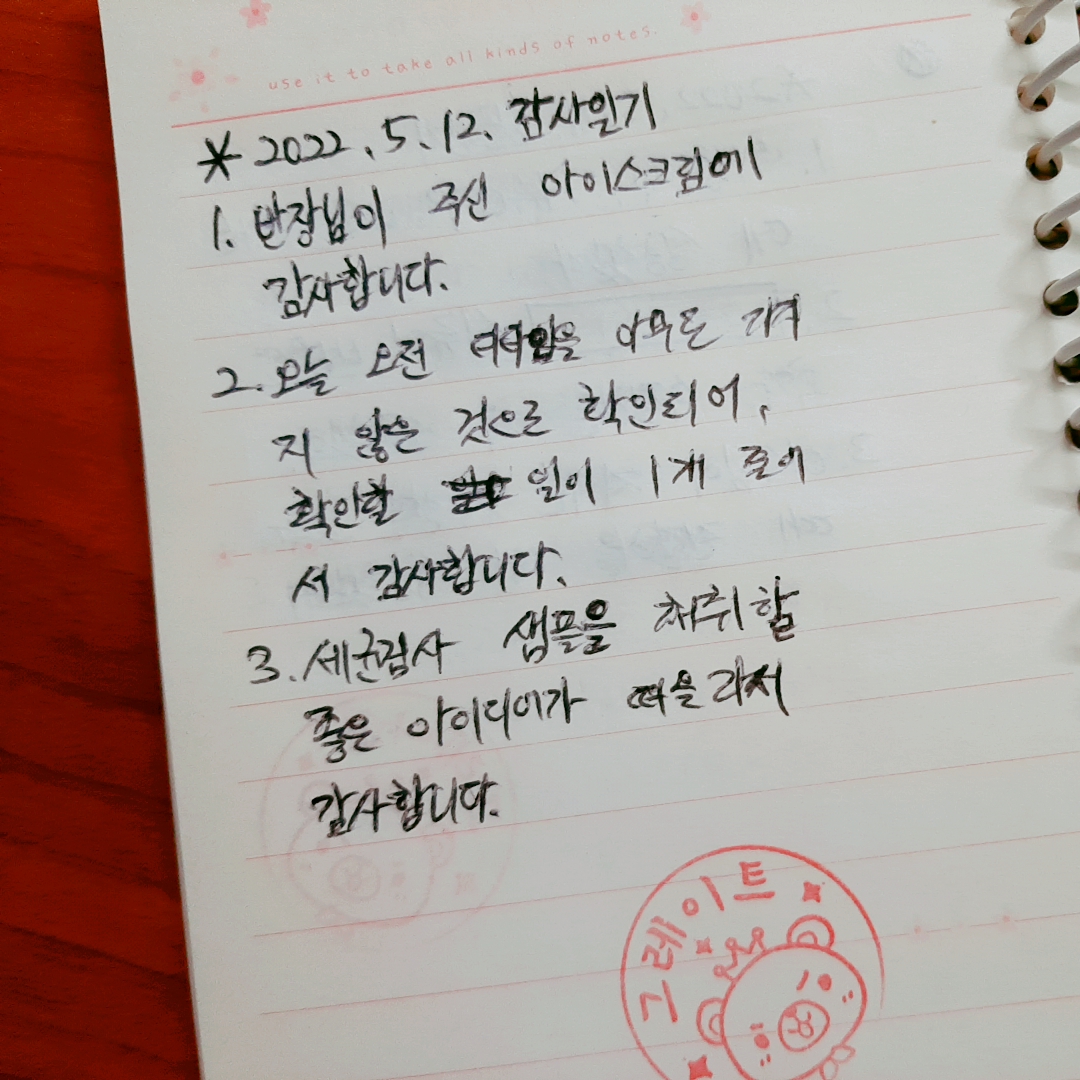 use it to take all kinds of notes.
* 2022. 5. 12. 감사일기
1. 반장님이 주신 아이스크림에
감사합니다.
2. 오늘 오전 아무도
지 않은 것으로 확인되어,
확인할 일이 1개 줄어
서 감사합니다.
3. 세균검사 샘플을 채취할
좋은 아이디어가 떠올라서
감사합니다.
그레이트